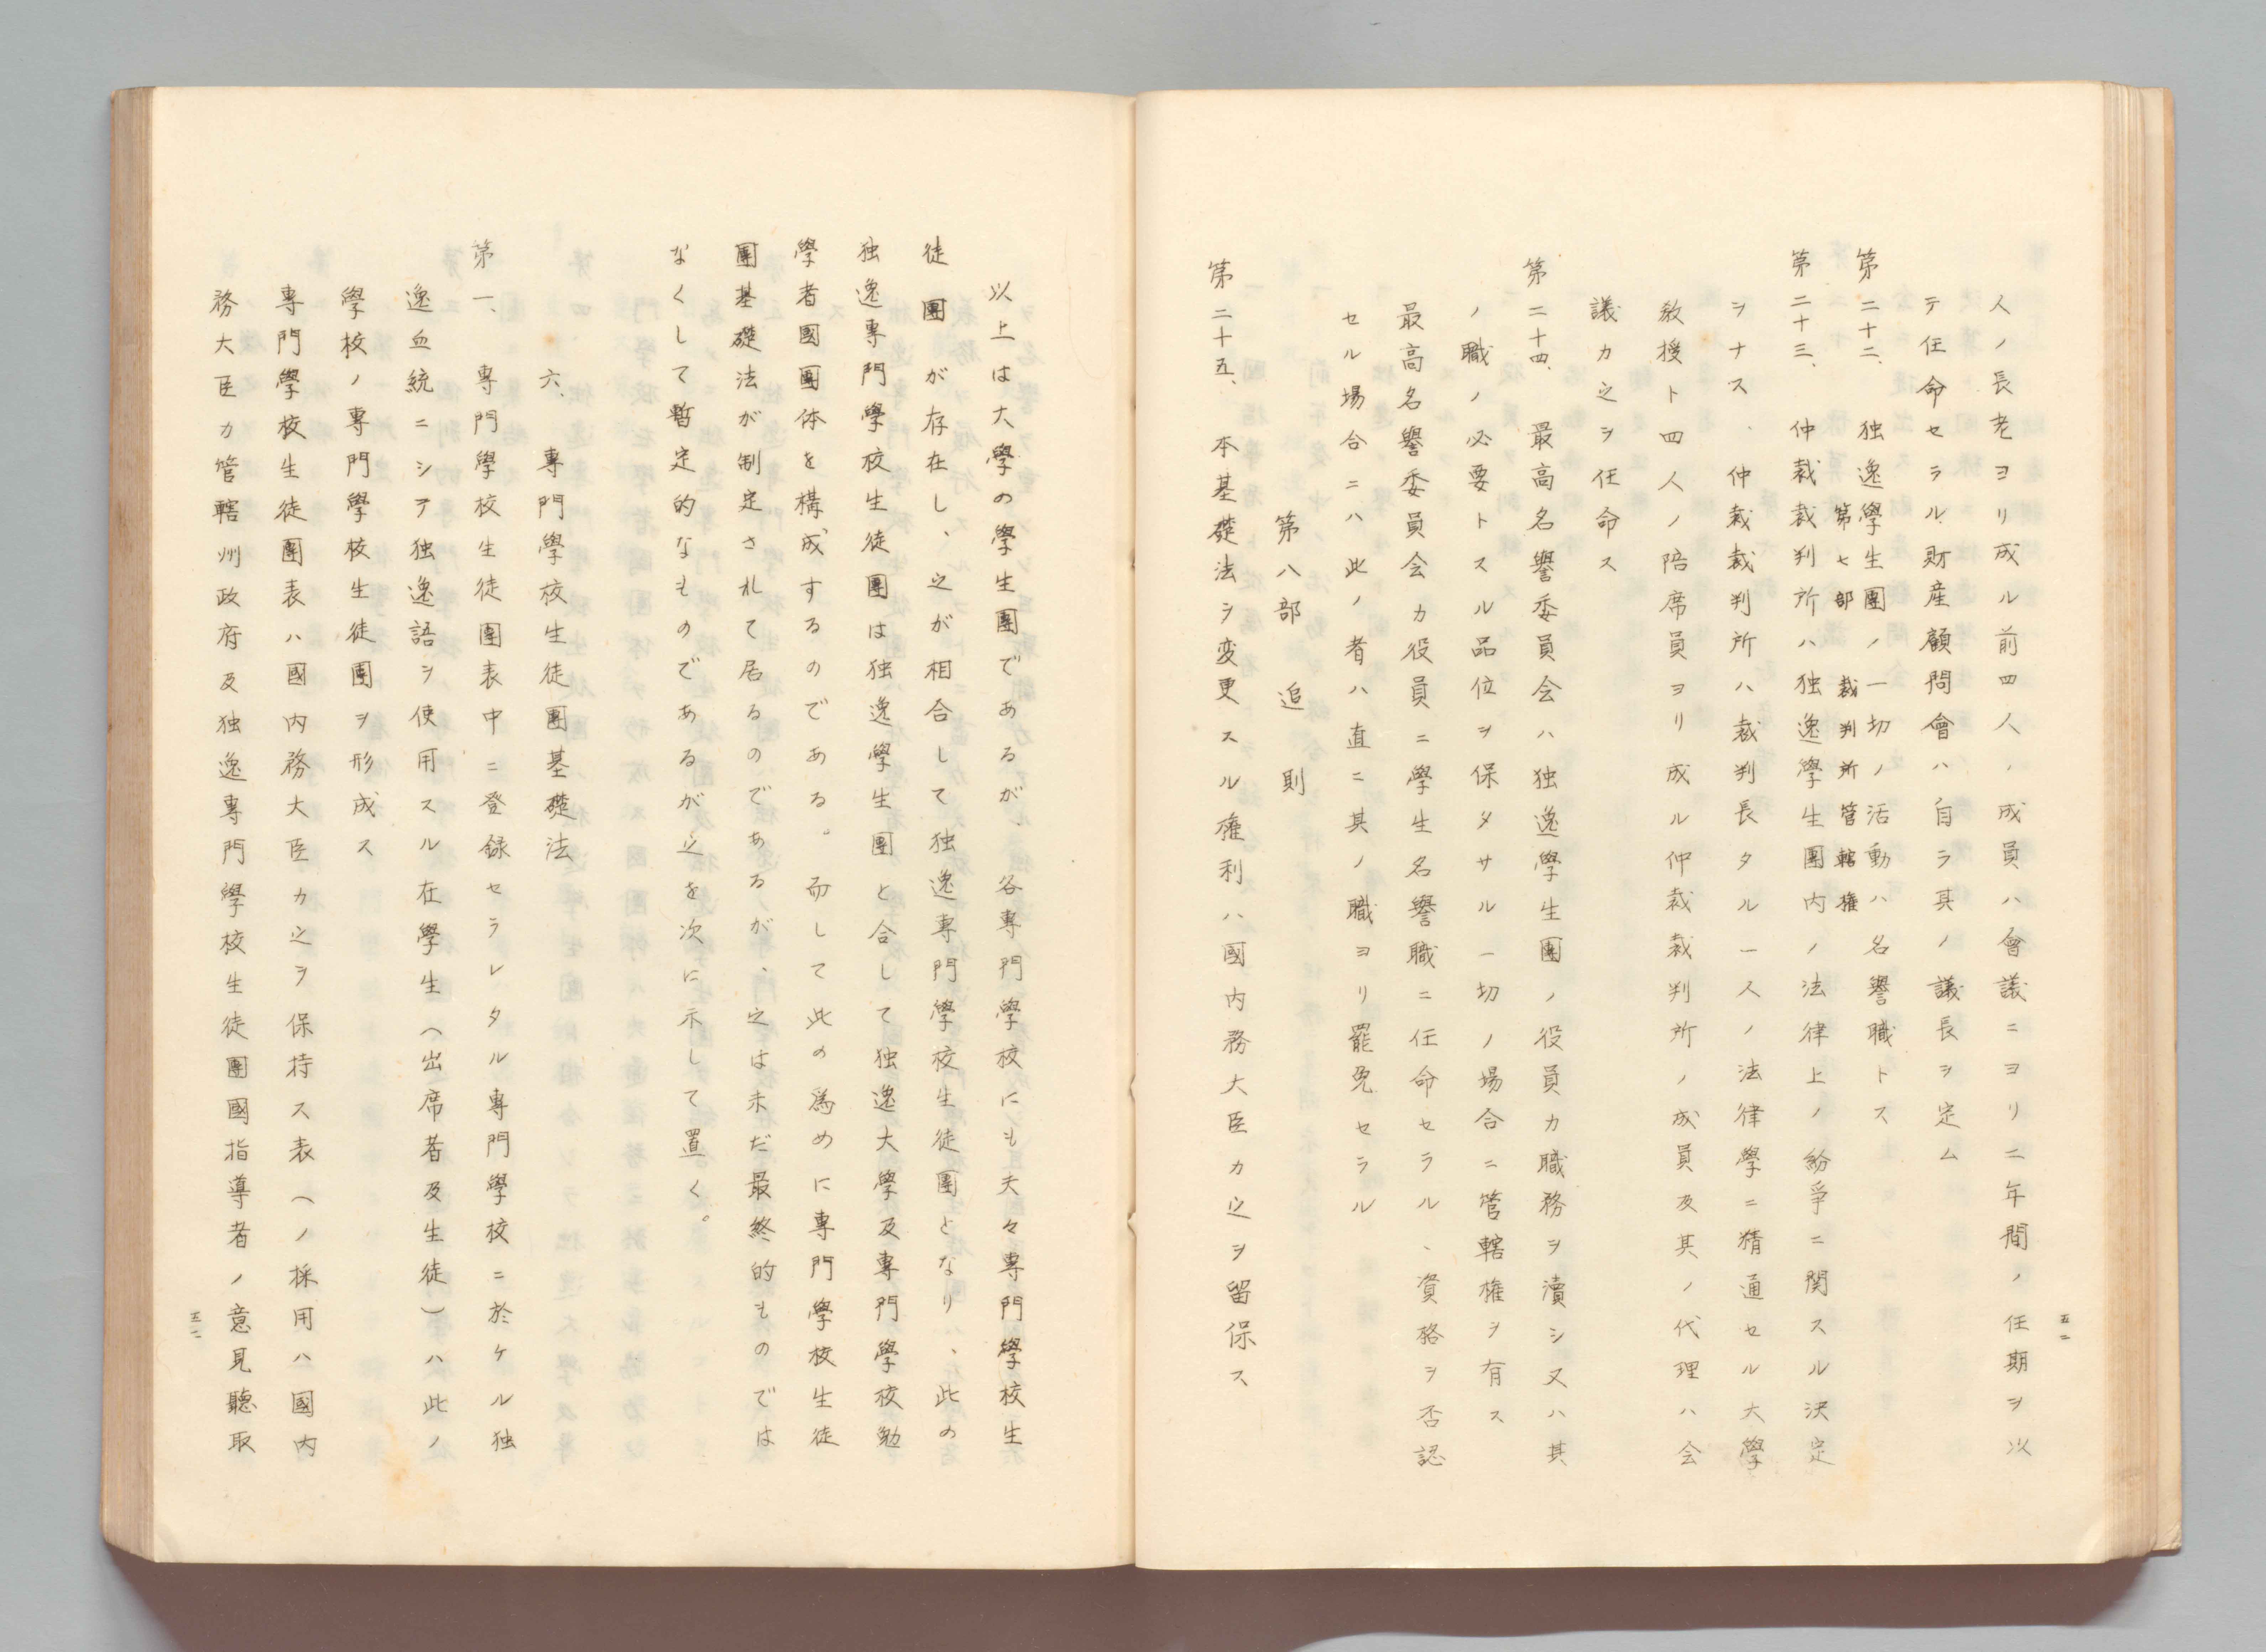 人ノ長老ヨリ成ル前四人ノ成員ハ會議ニヨリ二年間ノ任期ヲ以
テ任命セラル財産顧問會ハ自ラ其ノ議長ヲ定ム
第二十二、独逸學生團ノ一切ノ活動ハ名譽職トス
第七部 裁判所管轄権
第二十三、仲裁裁判所ハ独逸學生團内ノ法律上ノ紛爭ニ関スル決定
ヲナス、仲裁裁判所ハ裁判長タル一人ノ法律學ニ精通セル大學
敎授ト四人ノ陪席員ヨリ成ル仲裁裁判所ノ成員及其ノ代理ハ会
議カ之ヲ任命ス
第二十四、最高名譽委員会ハ独逸學生團ノ役員カ職務ヲ瀆シ又ハ其
ノ職ノ必要トスル品位ヲ保タサル一切ノ場合ニ管轄権ヲ有ス
最高名譽委員会カ役員ニ學生名譽職ニ任命セラル、資格ヲ否認
セル場合ニハ此ノ者ハ直ニ其ノ職ヨリ罷免セラル
第八部 追則
第二十五、本基礎法ヲ変更スル権利ハ國内務大臣カ之ヲ留保ス
五二
以上は大學の學生團であるが、各專門學校にも夫々專門學校生
徒團が存在し、之が相合して独逸專門學校生徒團となり、此の
独逸專門學校生徒團は独逸學生團と合して独逸大學及專門學校勉
學者國團体を構成するのである。而して此の爲めに專門學校生徒
團基礎法が制定されて居るのであるが、之は未だ最終的ものでは
なくして暫定的なものであるが之を次に示して置く。
六、專門學校生徒團基礎法
第一、專門學校生徒團表中ニ登録セラレタル專門學校ニ於ケル独
逸血統ニシテ独逸語ヲ使用スル在學生（出席者及生徒）ハ此ノ
學校ノ專門學校生徒團ヲ形成ス
專門學校生徒團表ハ國内務大臣カ之ヲ保持ス表ヘノ採用ハ國内
務大臣カ管轄州政府及独逸專門學校生徒團國指導者ノ意見聽取